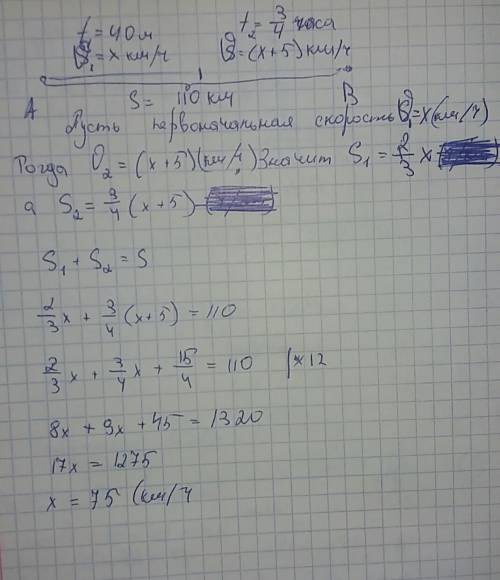 t₁ = 40 м t₂ = 3/4 часа
υ₁ = x км/ч υ = (x+5) км/ч
A S = 110 км B
Пусть первоначальная скорость υ₁ = x (км/ч)
Тогда υ₂ = (x+5) (км/ч) Значит S₁ = 2/3 x
а S₂ = 3/4 (x+5)
S₁ + S₂ = S
2/3 x + 3/4 (x+5) = 110
2/3 x + 3/4 x + 15/4 = 110 |×12
8x + 9x + 45 = 1320
17x = 1275
x = 75 (км/ч